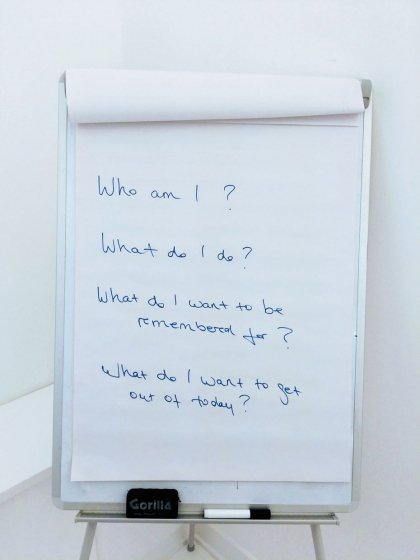 Who am I ?
What do I do?
What do I want to be
remembered for ?
What do I want to get
out of today?
Gorilla